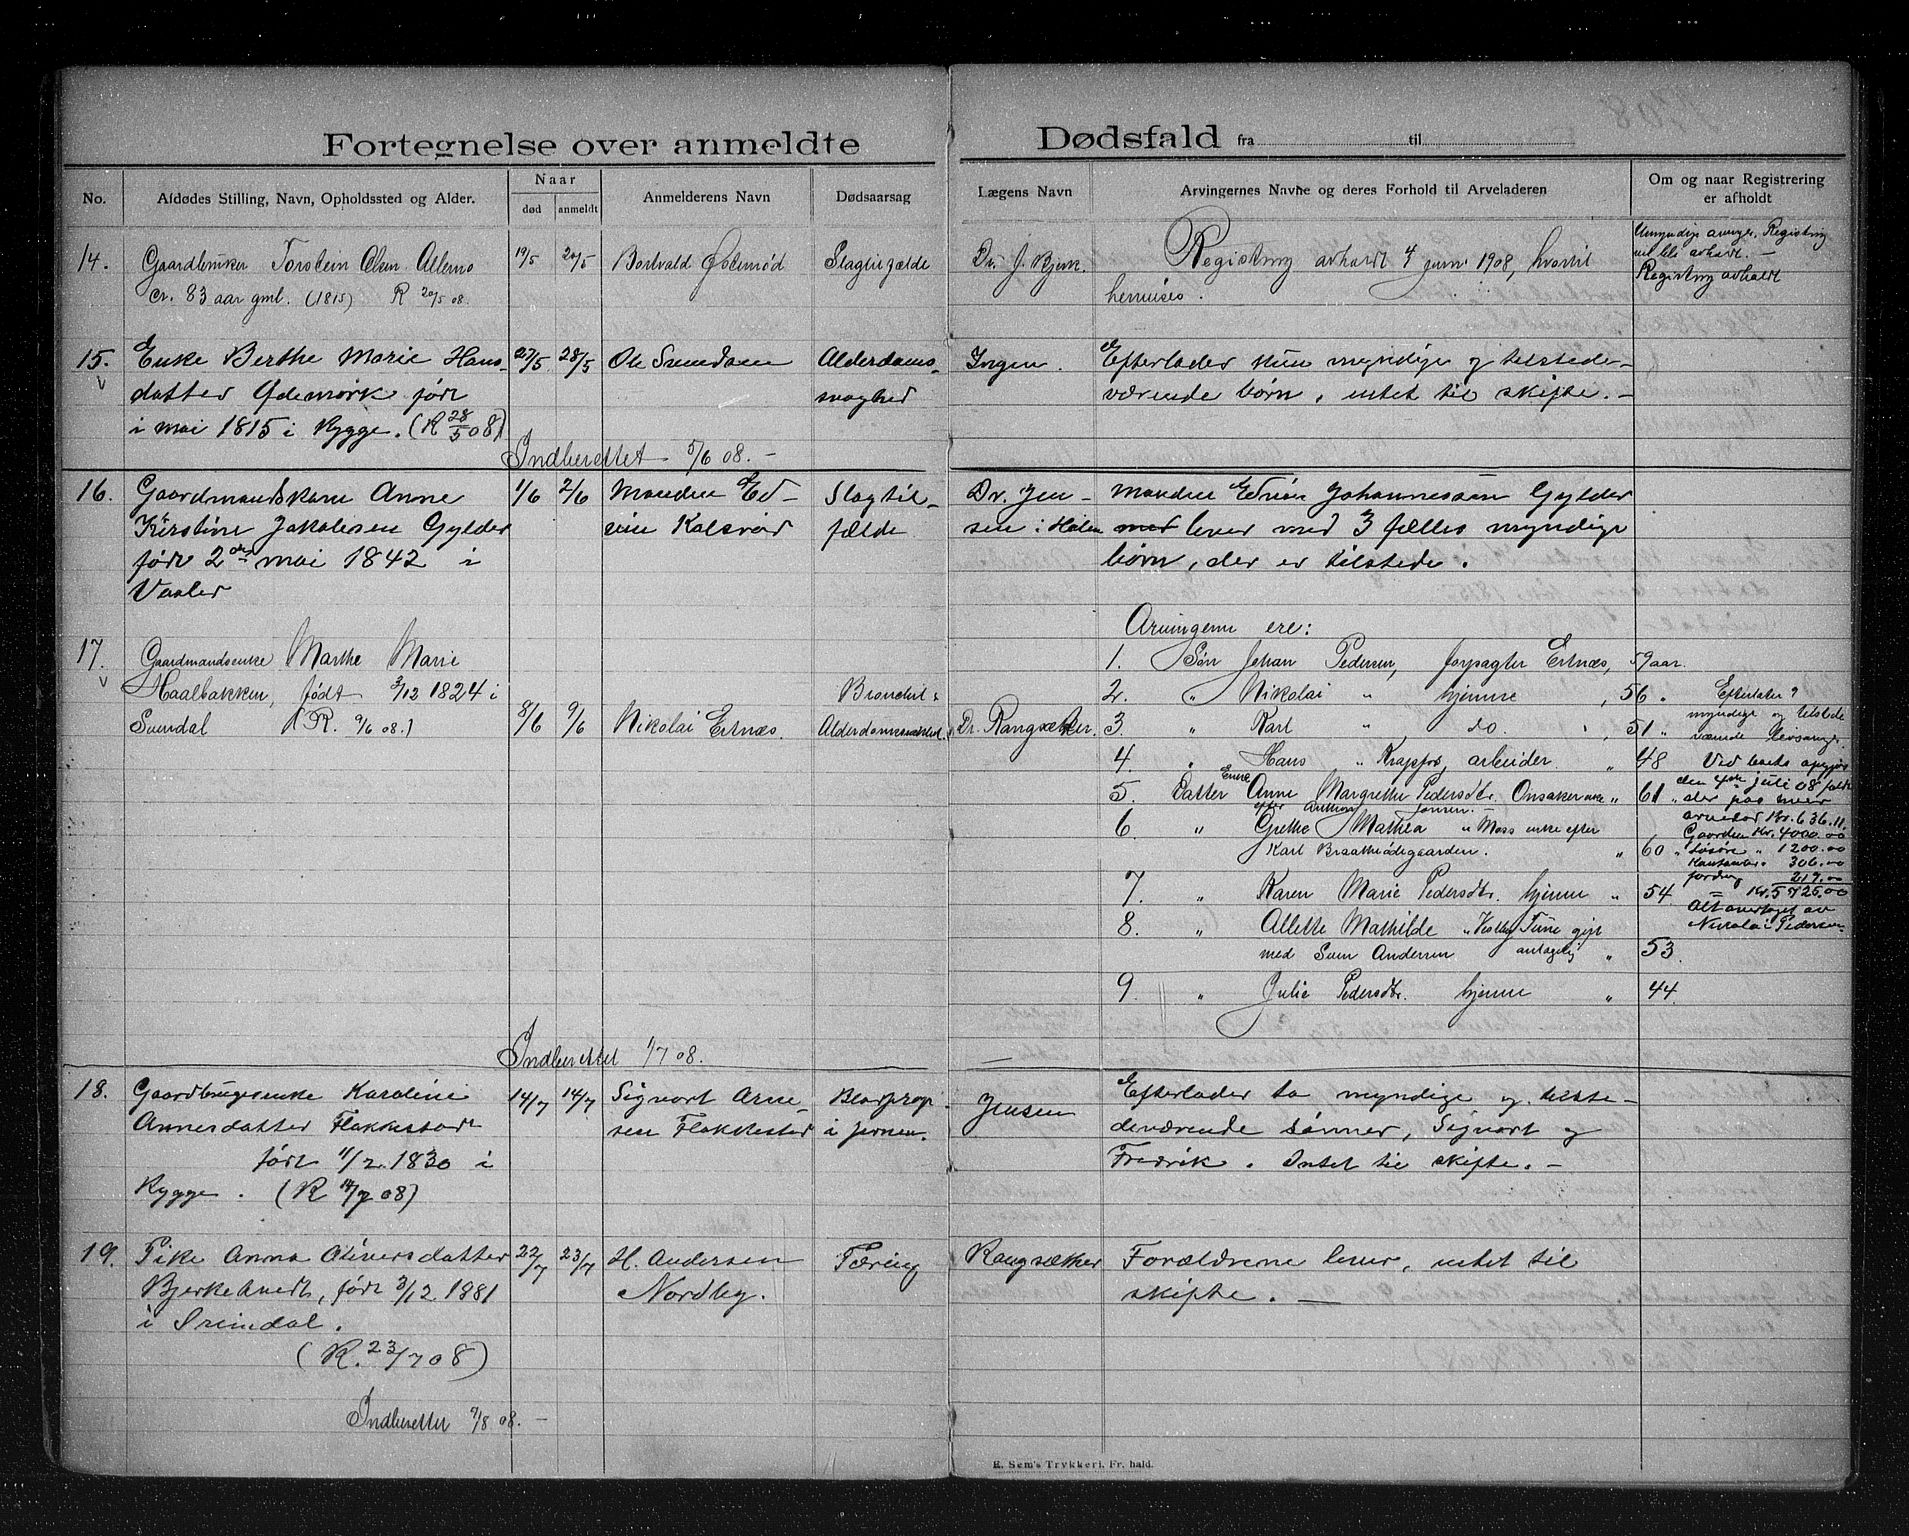 1908
Fortegnelse over anmeldte Dødsfald fra til
No.
Afdødes Stilling, Navn, Opholdssted og Alder.
Naar
død
anmeldt
Anmelderens Navn
Dødsaarsag
Lægens Navn
Arvingernes Navne og deres Forhold til Arveladeren
Om og naar Registrering
er afholdt
14.
Gaardbruker Torstein Olsen
cr. 83 aar gml. (1815) R 20/5 08.
19/5
20/5
Bortvald
Slagtilfælde
Dr. J. Bjerk.
Registring avholdt 4 juni 1908, hvortil
henvises.
Umyndige arvinger. Registring
vil bli avholdt. –
Registring avholdt
15.
Enke Berthe Marie Hans-
datter Ødemørk født
i mai 1815 i Rygge. (R 28/5 08)
27/5
28/5
Ole
Alderdoms-
svaghed
Ingen.
Efterlader kun myndige og tilstede-
værende børn, intet til skifte. –
Indberettet 5/6 08. –
16.
Gaardmandskone Anne
Kirstine Jakobsen Gylder
født 2den mai 1842 i
Vaaler
1/6
2/6
Manden Ed-
vin Kolsrød
Slagtil-
fælde
Dr. Jen-
sen i Hølen
Manden Edvin Johannessen Gylder
lever med 3 fælles myndige
børn, der er tilstede.
17.
Gaardmandsenke Marthe Marie
Haalbakken, født 3/12 1824 i
Svendal (R. 9/6 08.)
8/6
9/6
Nikolai Ertnæs.
Bronchit &
Alderdomssvakhet.
Dr. Rangsæther.
Arvingerne ere:
1. Søn Johan Pedersen, forpagter Ertnæs, 59 aar.
2. " Nikolai " hjemme , 56 "
3 " Karl " do. , 51 "
4. " Hans " Krapfos, arbeider. " 48
5. Datter Anne Margrethe Pedersdtr. Onsaker " 61 "
Enke efter Anthon Jonsen. –
6. " Grethe Mathea " Moss enke efter
Karl Braathødegaarden. " 60 "
7. " Karen Marie Pedersdtr. hjemme " 54
8. " Allette Mathilde " Vestby Tune gift
med Sven Andersen antagelig " 53.
9. " Julie Pedersdtr. hjemme " 44.
Efterlater 9
myndige og tilstede
værende livsarvinger.
Ved boets opgjør
den 4de juli 08 faldt
der paa hver
arvelod Kr. 636.11.
Gaarden Kr. 4000.00
Løsøre " 1200.00
Kontanter 306.00
fordring 219.00
– Kr. 5725.00
Alt overtaget av
Nicolai Pedersen
Indberettet 1/7 08. –
18.
Gaardbrugerenke Karoline
Annersdatter Flakkestad
født 11/2 1830 i
Rygge. (R 14/7 08)
14/7
14/7
Sigvart Arne-
sen Flakkestad
Blodprop
i hjernen.
Jensen
Efterlader to myndige og tilste-
deværende sønner, Sigvart og
Fredrik. Intet til skifte. –
19.
Pike Anna Oliversdatter
Bjerkebundt, født 3/12 1881
i Svindal.
(R. 23/7 08)
22/7
23/7
H. Andersen
Nordby.
Tæring
Rangsæther
Forældrene lever, intet til
skifte. –
Indberettet 7/8 08. –
E. Sem's Trykkeri, Fr. hald.